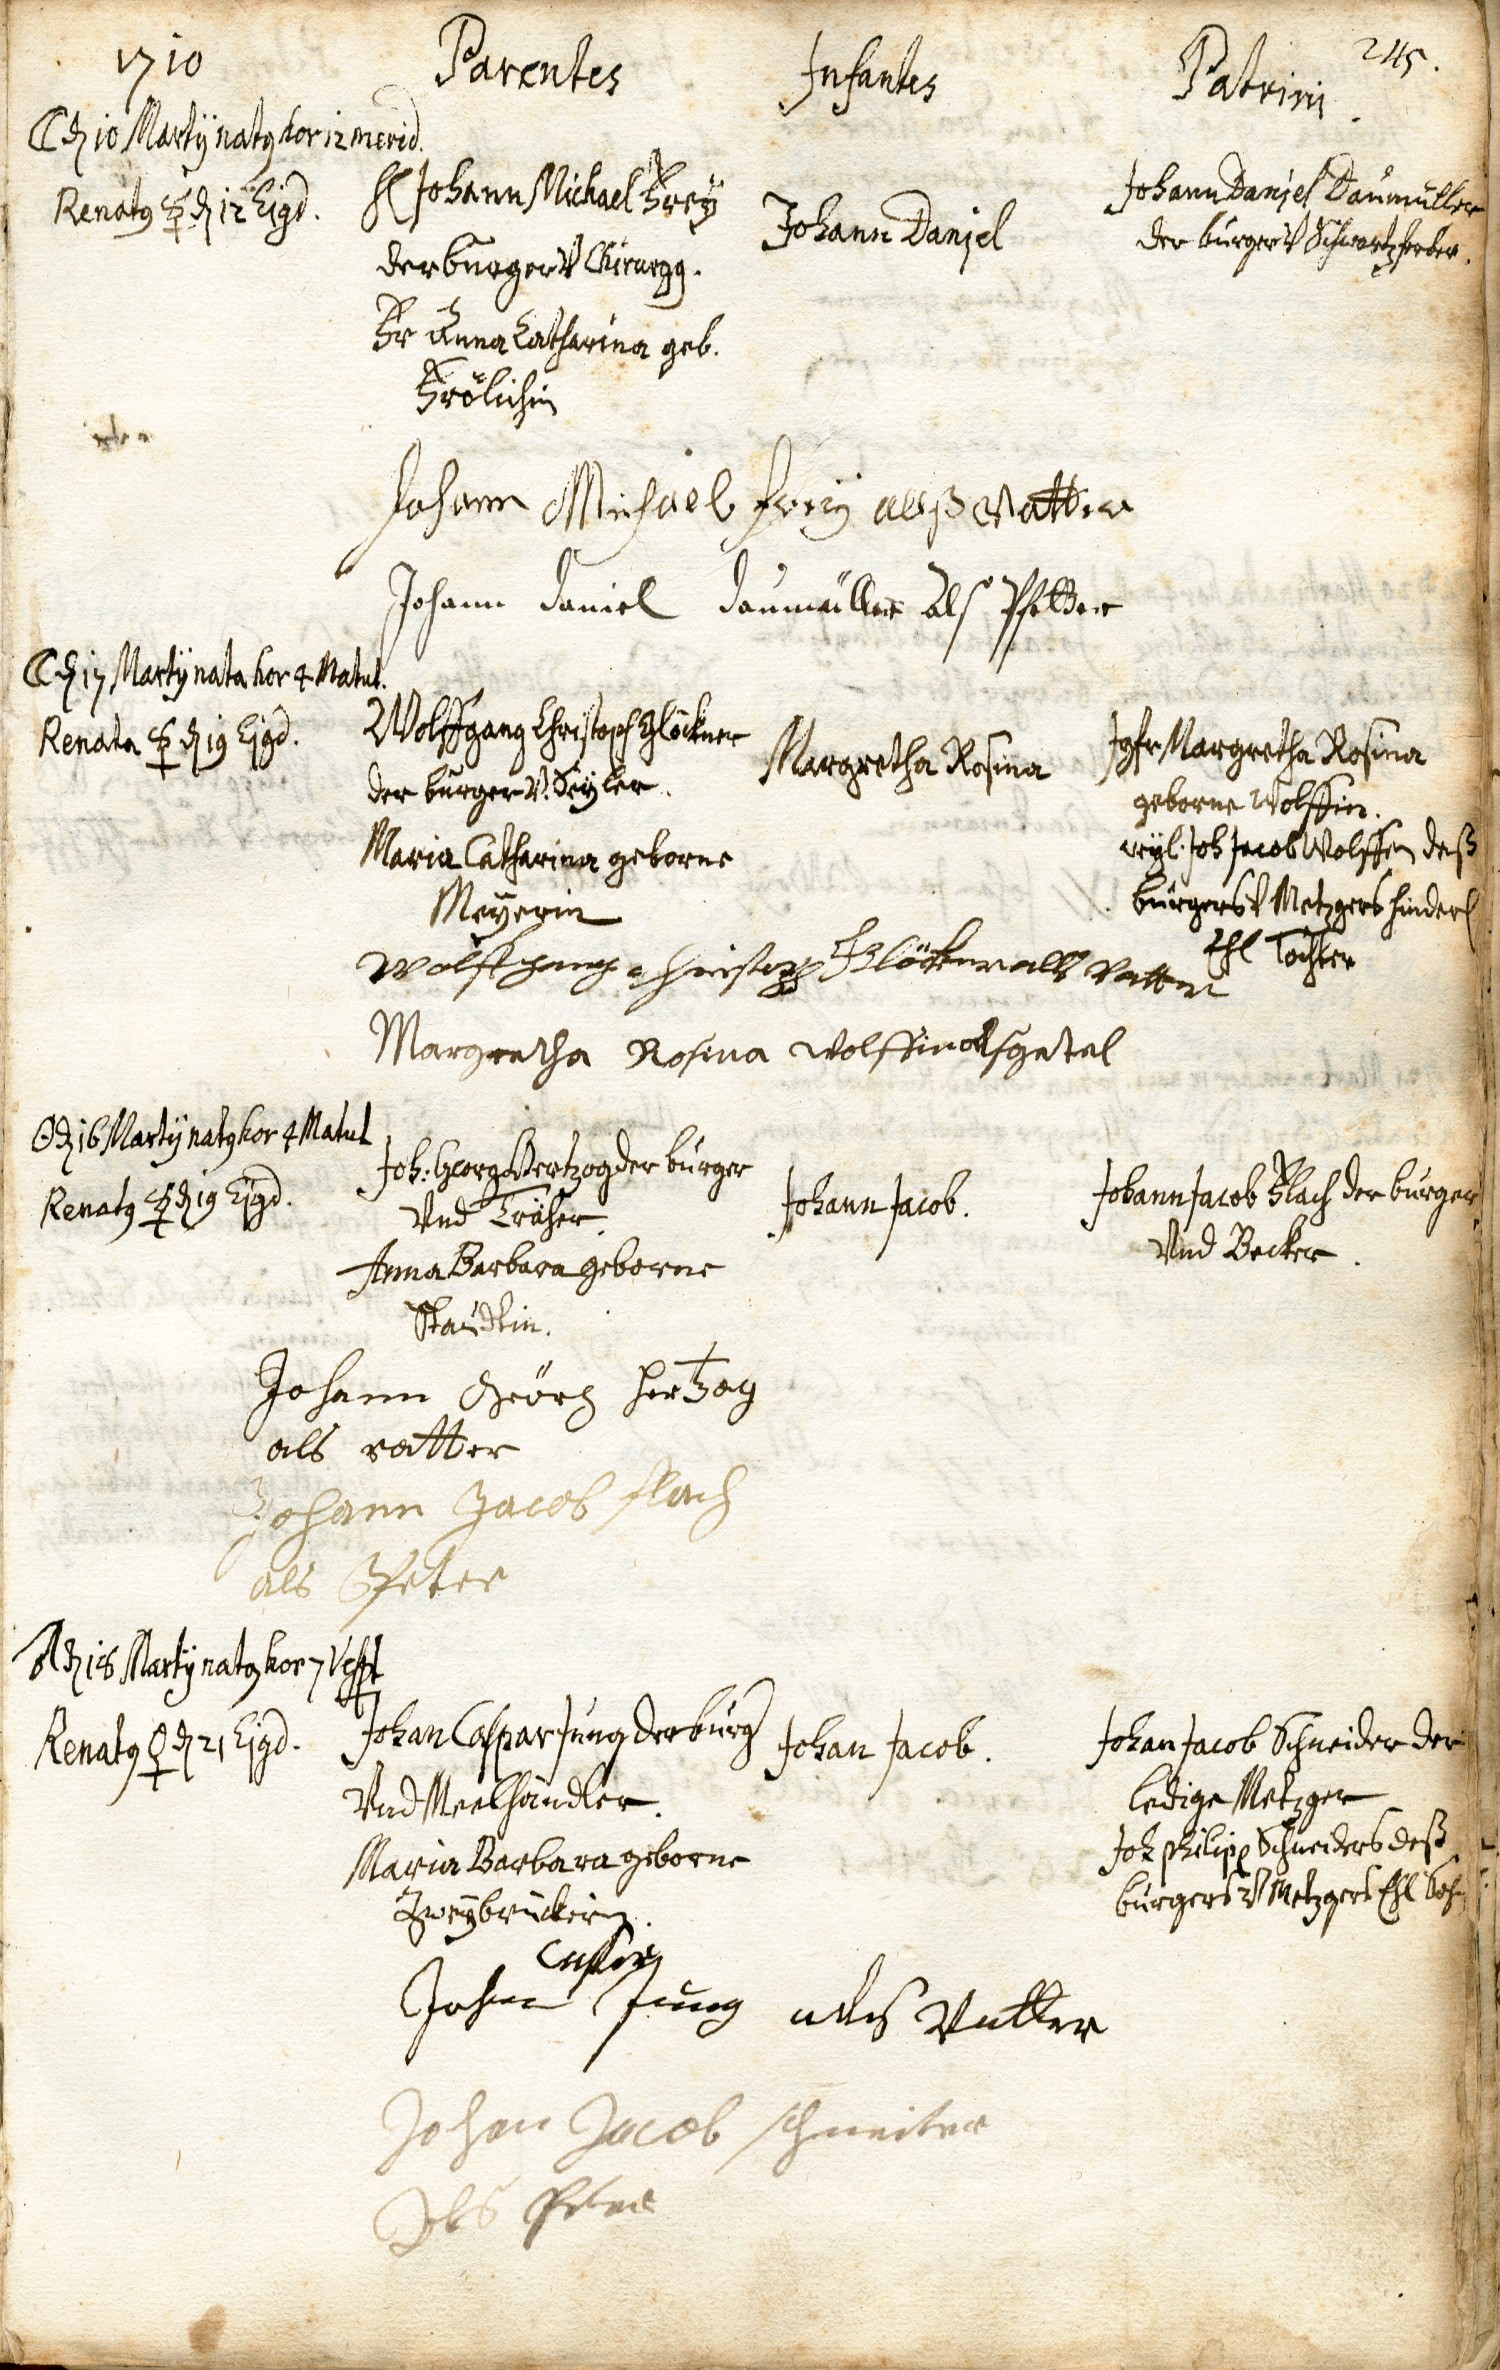 1710 Parentes Infantes Patrini. 245.
☾ d 10 Martij natꝯ hor 12 merid.
Renatꝯ ☿ d 12 Ejqd.
H Johann Michael Frey
der burger V Chirurgꝯ.
Fr Anna Catharina geb.
Frölichin
Johann Daniel
Johann Daniel Daumüller
der burger V Schwartzferber.
Johann Michael Freÿ alß Vatter
Johann Daniel Daumüller als Pfetter
☾ d 17 Martij nata hor 4 Matut.
Renata ☿ d 19 Ejqd.
Wolffgang Christoph Glöckner
der burger V. Seyler.
Maria Catharina geborne
Meyerin
Margretha Rosina
Jgfr Margretha Rosina
geborne Wolffin.
weyl. Joh Jacob Wolffen deß
burgers V Metzgers hinderl
Ehl Tochter
Wolffgang Christoph Glöckner alls Vatter
Margretha Rosina Wolffin als getel
☉ d 16 Martij natꝯ hor 4 Matut
Renatꝯ ☿ d 19 Ejqd.
Joh: Georg Hertzog der burger
Vnd
Anna Barbara geborne
Staüdtin.
Johann Jacob.
Johann Jacob Flach der burger
Vnd Becker.
Johann Geörg Hertzog
als vatter
Johann Jacob flach
als Pfeter
♂ d 18 Martij natꝯ hor 7 Vesp
Renatꝯ ♀ d 21 Ejqd.
Johan Caspar Jung der burg
Vnd Meelhändler.
Maria Barbara geborne
Zweybrückerin.
Johan Jacob.
Johan Jacob Schneider der
ledige Metzger
Joh philipp Schneiders deß
burgers V Metzgers Ehl Sohn
Casper
Johan Jung als Vatter
Johan Jacob schneiter
Als